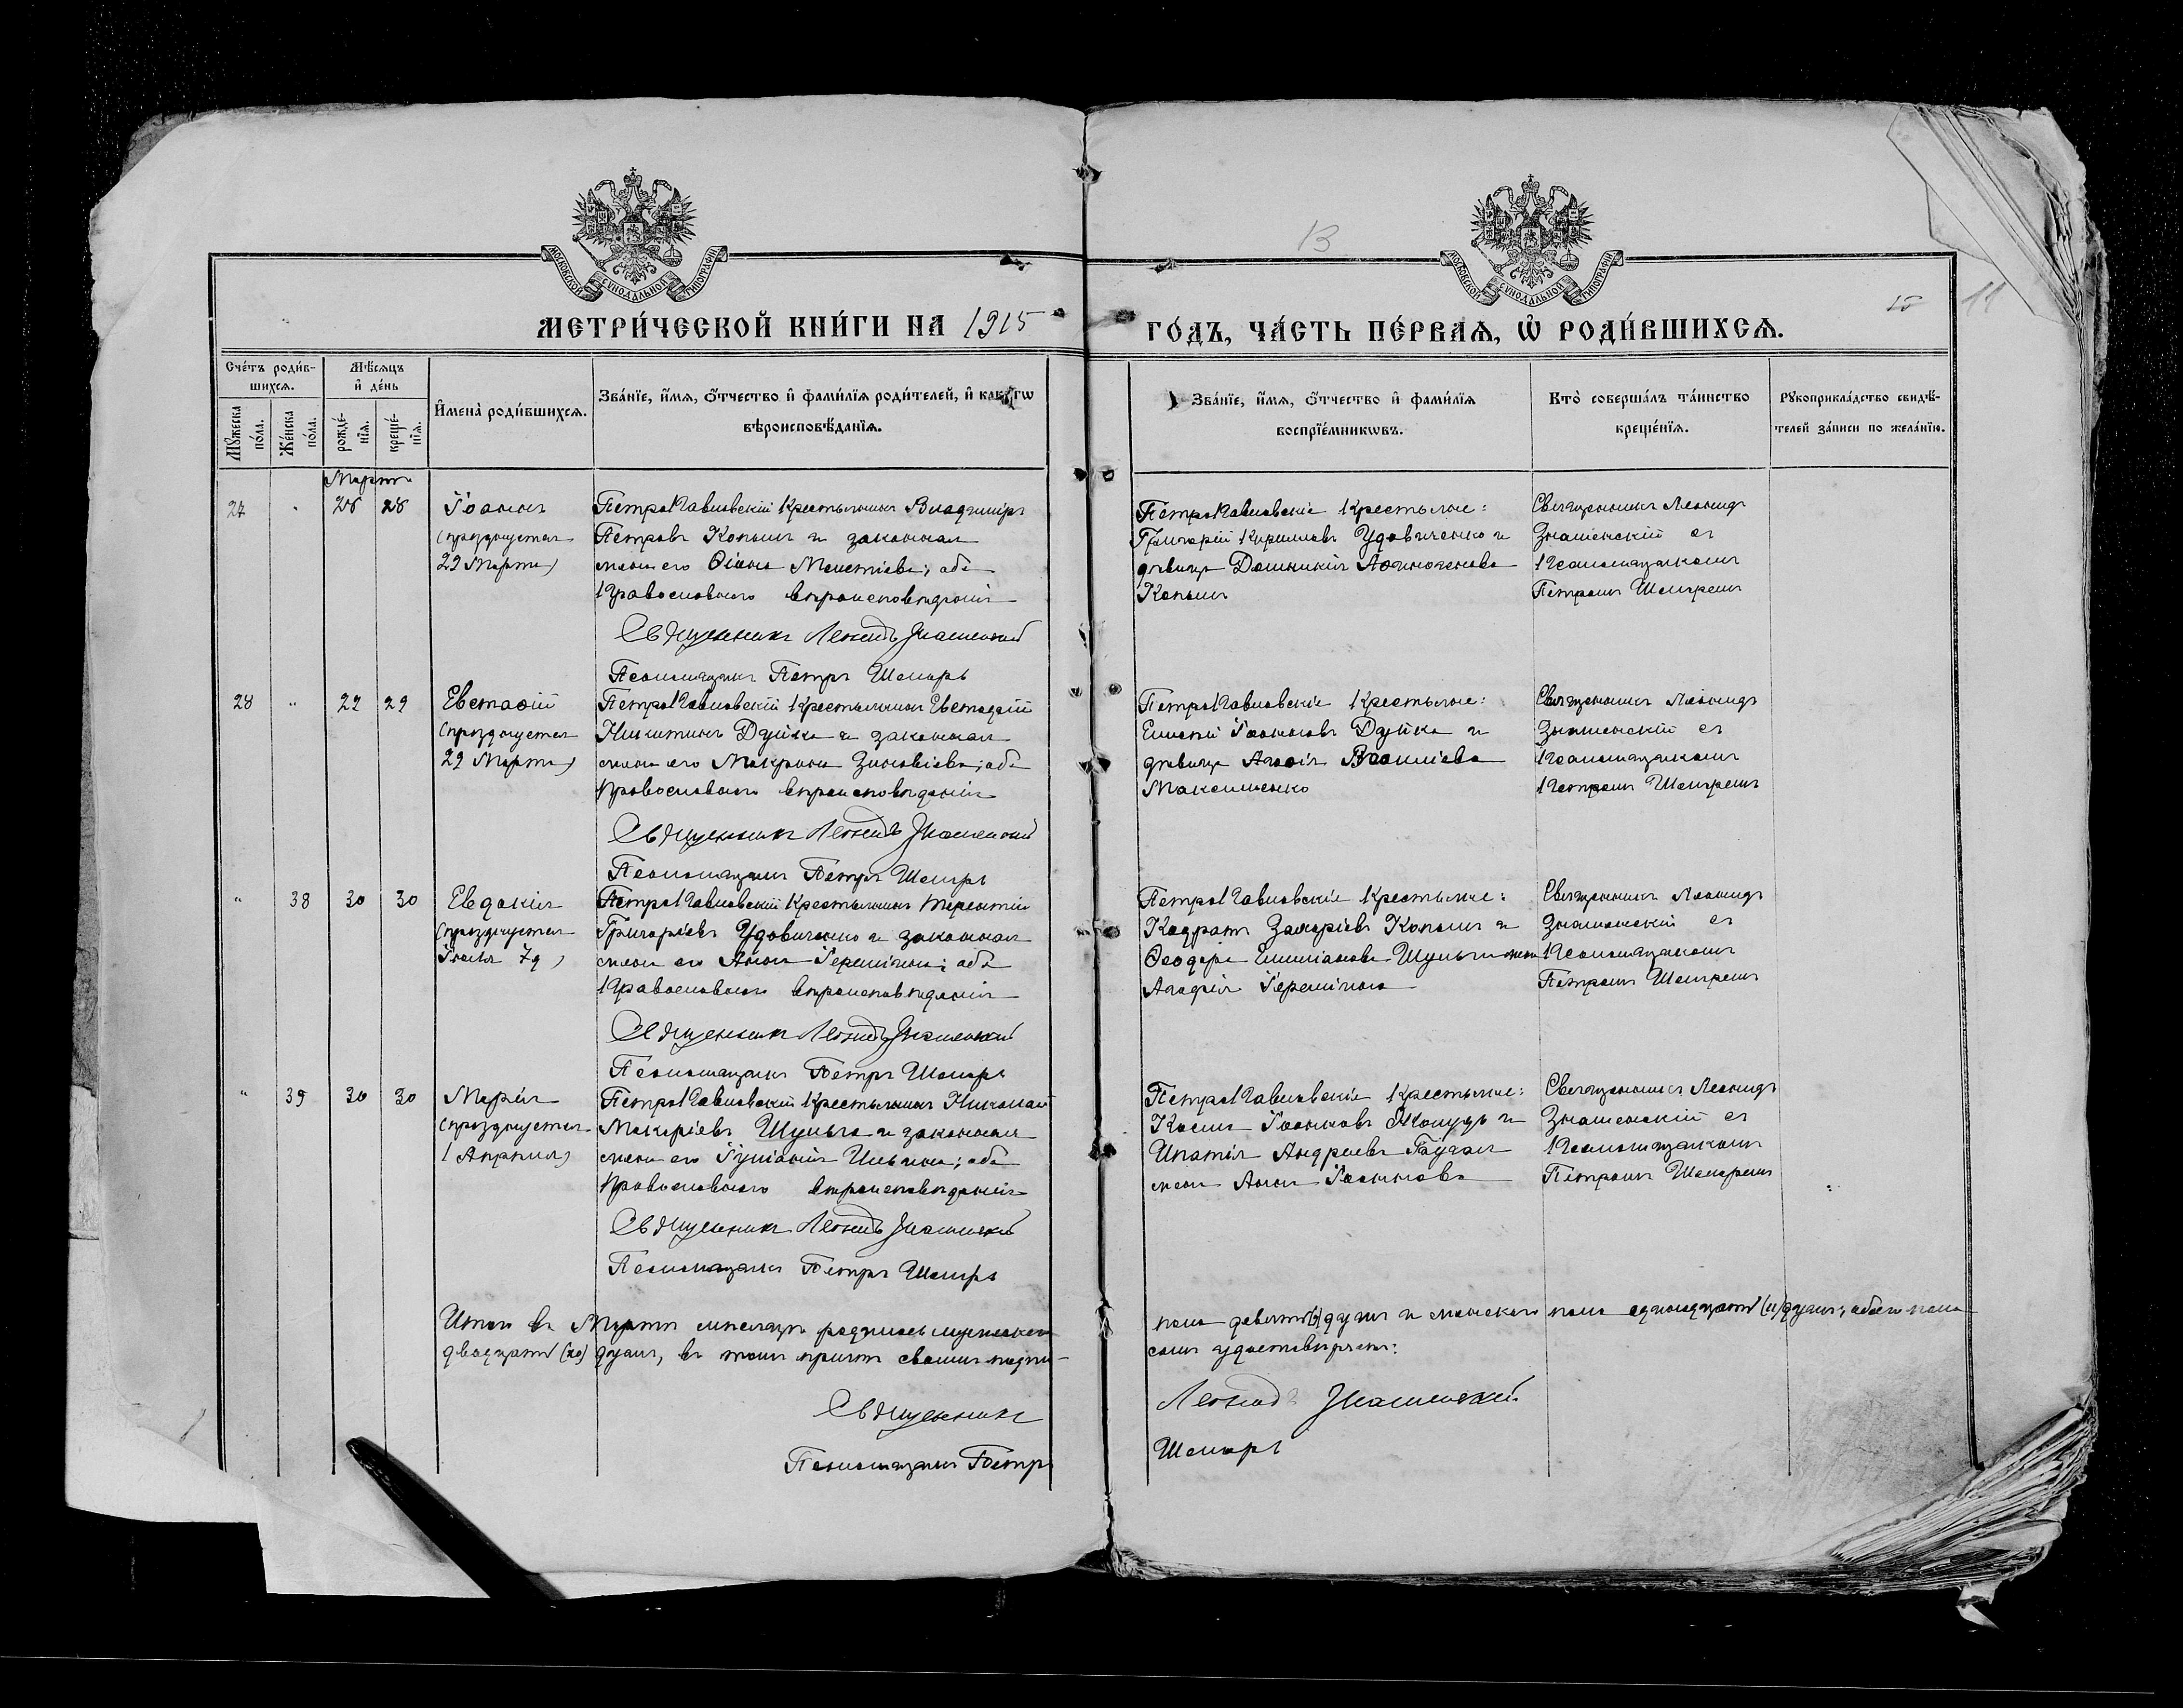 13
15
11
МОСКОВСКОЙ СУНОДАЛЬНОЙ ТИПОГРАФІИ
МОСКОВСКОЙ СУНОДАЛЬНОЙ ТИПОГРАФІИ
МЕТРИ́ЧЕСКОЙ КНИ́ГИ НА 1915 ГО́ДЪ, ЧА́СТЬ ПЕ́РВАЯ, Ѡ РОДИ́ВШИХСЯ.
Сче́тъ роди́вшихся.
Мꙋ́жеска по́ла.
Же́нска по́ла.
Мѣ́сяцъ и де́нь
рожде́нїя.
креще́нїя.
Имена̀ роди́вшихся.
Зва́нїе, и́мя, о́тчество и фами́лїя роди́телей, и
вѣроисповѣ́данїя.
Зва́нїе, и́мя, о́тчество и фами́лїя
воспрїе́мникѡвъ.
Кто̀ соверша́лъ та́инство
креще́нїя.
Рꙋкоприкла́дство свидѣ́-
телей за́писи по жела́нїю.
Мартъ
27 " 28 28 Іоаннъ
(празднуется
29 Марта)
Петро-Павловскій крестьянинъ Владиміръ
Петровъ Копыл и законная
жена его; оба
Православного вѣроисповѣданія
Священникъ Леонидъ Знаменскій
Псаломщикъ Петръ
Петро-Павловскіе крестьяне:
Григорій Кирилловъ Удовиченко и
дѣвица
Копыл
Священникъ Леонидъ
Знаменскій съ
Псаломщикомъ
Петромъ
28 " 22 29 Евстафій
(празднуется
29 Марта)
Петро-Павловскій крестьянинъ Евстафій
Никитинъ Дуйка и законная
жена его Макрина Зиновіева; оба
Православного вѣроисповѣданія
Священникъ Леонидъ Знаменскій
Псаломщикъ Петръ
Петро-Павловскіе крестьяне:
Іоанновъ Дуйка и
дѣвица Агафія Васильева
Максименко
Священникъ Леонидъ
Знаменскій съ
Псаломщикомъ
Петромъ
" 38 30 30 Евдокія
(празднуется
7 д)
Петро-Павловскій крестьянинъ Терентій
Григорьевъ Удовиченко и законная
жена его Анна Іереміина; оба
Православного вѣроисповѣданія
Священникъ Леонидъ Знаменскій
Псаломщикъ Петръ
Петро-Павловскіе крестьяне:
Кодратъ Захаріевъ Копыл и
Ѳеодора Шульги жена
Агафія Іереміина
Священникъ Леонидъ
Знаменскій съ
Псаломщикомъ
Петромъ
" 39 30 30 Марія
(празднуется
1 Апрѣля)
Петро-Павловскій крестьянинъ Николай
Макаріевъ Шульга и законная
жена его Іуліанія Ильина; оба
Православного вѣроисповѣданія
Священникъ Леонидъ Знаменскій
Псаломщикъ Петръ
Петро-Павловскіе крестьяне:
Косма Іоанновъ и
Игнатія Андреева
жена Анна Іоаннова
Священникъ Леонидъ
Знаменскій съ
Псаломщикомъ
Петромъ
Итого въ Мартѣ мѣсяцѣ родилось мужского пола девять (9) душъ и женского пола одинадцать (11) душъ, обоего пола
двадцать (20) душъ, въ томъ причтъ своими подписями удостовѣряетъ:
Священникъ Леонидъ Знаменскій
Псаломщикъ Петръ